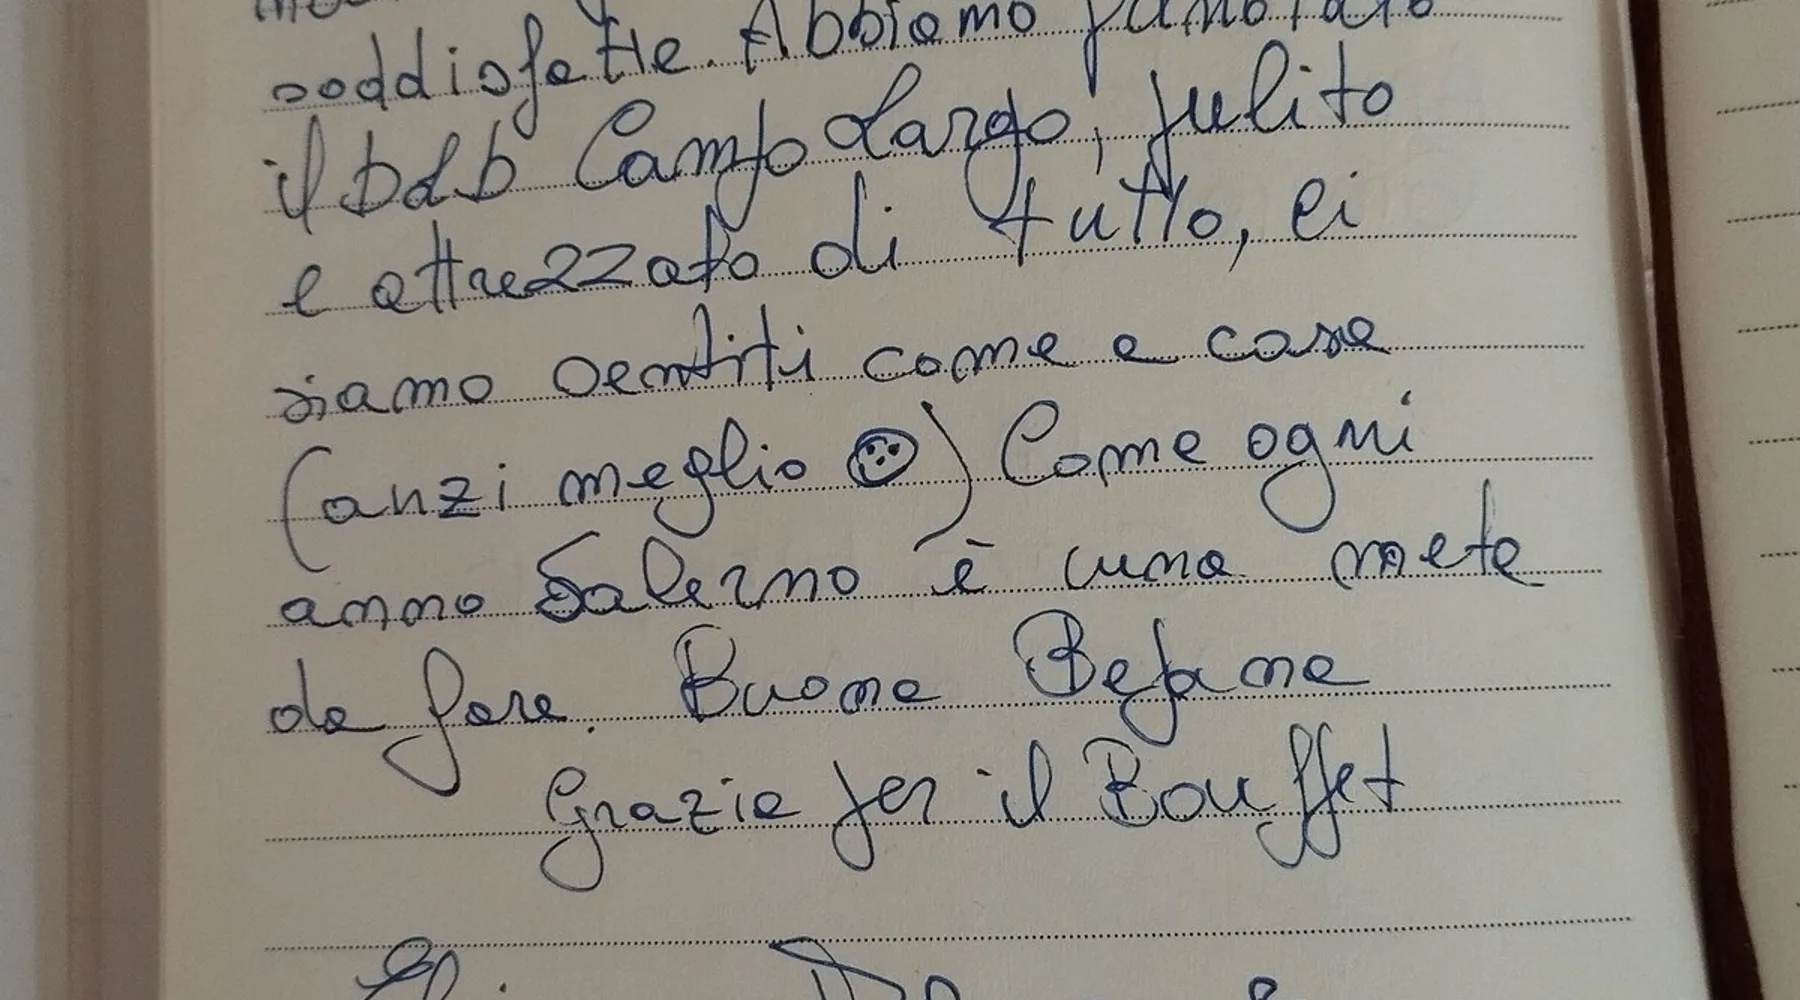 soddisfatte. Abbiamo prenotato
il b&b Campo Largo, pulito
e attrezzato di tutto, ci
siamo sentiti come a casa
(anzi meglio ☺) Come ogni
anno Salerno è una meta
da fare. Buona Befana
Grazie per il Bouffet